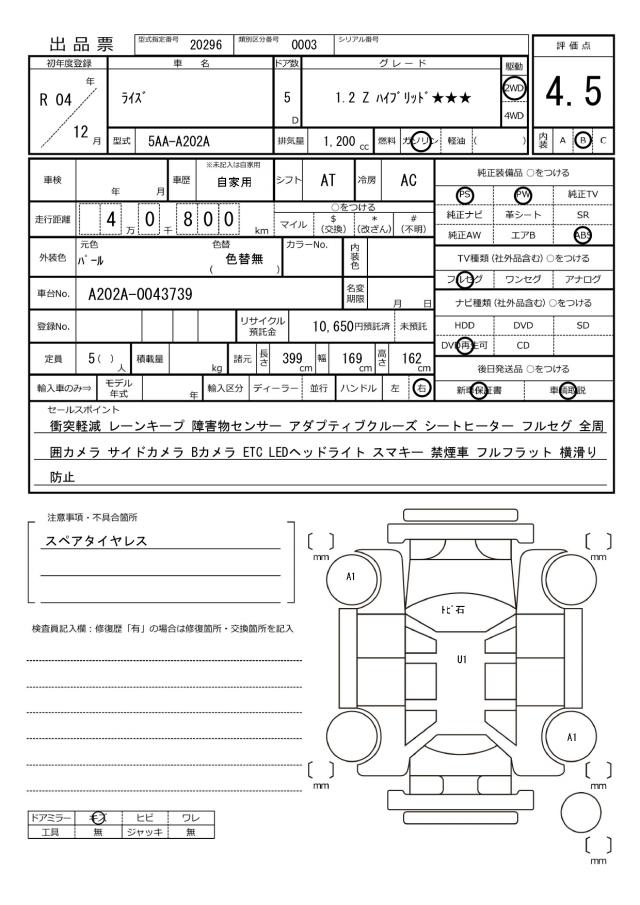 出品票
型式指定番号 20296 類別区分番号 0003 シリアル番号
評価点
4.5
初年度登録 車名 ドア数 グレード 駆動
R 04 年 / 12 月
ライズ 5 D 1.2 Z ハイブリッド★★★
2WD
4WD
型式 5AA-A202A 排気量 1,200 cc 燃料 ガソリン 軽油 ( )
内装 A B C
車検 年 月 車歴 ※未記入は自家用 自家用 シフト AT 冷房 AC
走行距離 4 万 0 千 8 0 0 km
○をつける
マイル $(交換) *(改ざん) #(不明)
外装色 元色 パール 色替 色替無 ( ) カラーNo. 内装色
車台No. A202A-0043739 名変期限 月 日
登録No. リサイクル預託金 10,650円預託済 未預託
定員 5( )人 積載量 kg 諸元 長さ 399 cm 幅 169 cm 高さ 162 cm
輸入車のみ⇒ モデル年式 年 輸入区分 ディーラー 並行 ハンドル 左 右
純正装備品 ○をつける
PS PW 純正TV
純正ナビ 革シート SR
純正AW エアB ABS
TV種類(社外品含む)○をつける
フルセグ ワンセグ アナログ
ナビ種類(社外品含む)○をつける
HDD DVD SD
DVD再生可 CD
後日発送品 ○をつける
新車保証書 車輌取説
セールスポイント
衝突軽減 レーンキープ 障害物センサー アダプティブクルーズ シートヒーター フルセグ 全周
囲カメラ サイドカメラ Bカメラ ETC LEDヘッドライト スマキー 禁煙車 フルフラット 横滑り
防止
注意事項・不具合箇所
スペアタイヤレス
検査員記入欄：修復歴「有」の場合は修復箇所・交換箇所を記入
ドアミラー キズ ヒビ ワレ
工具 無 ジャッキ 無
〔 〕 mm
〔 〕 mm
A1
トビ石
U1
A1
〔 〕 mm
〔 〕 mm
〔 〕 mm